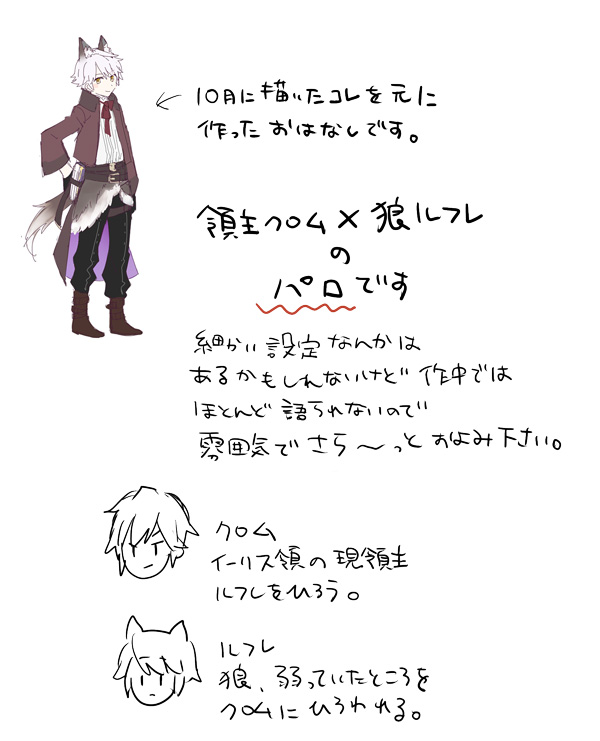 10月に描いたコレを元に
作った おはなしです。
領主クロム×狼ルフレ
の
パロです
細かい設定なんかは
あるかもしれないけど 作中では
ほとんど語られないので
雰囲気でさら〜っとおよみ下さい。
クロム
イーリス領の現領主
ルフレをひろう。
ルフレ
狼、弱っていたところを
クロムにひろわれる。